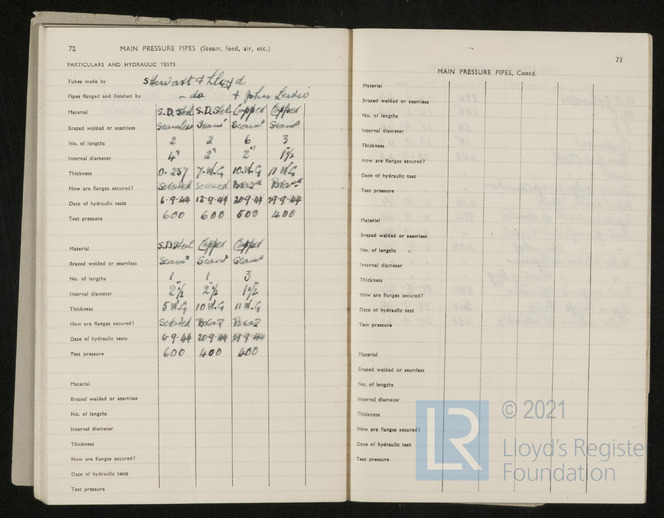 72 MAIN PRESSURE PIPES (Steam, feed, air, etc.)
PARTICULARS AND HYDRAULIC TESTS
Tubes made by Stewart & Lloyd
Pipes flanged and finished by - do & John Leslie
Material S.D.Steel S.D.Steel Copper Copper
Brazed welded or seamless Seamless Seams Seams Seams
No. of lengths 2 2 6 3
Internal diameter 4" 2" 2" 1½
Thickness 0.237 7.W.G 10.W.G 11 WG
How are flanges secured? Screwed Screwed Brazed Brazed
Date of hydraulic tests 6-9-44 12-9-44 20-9-44 29-9-44
Test pressure 600 600 500 400
Material S.D.Steel Copper Copper
Brazed welded or seamless Seams Seams Seams
No. of lengths 1 1 3
Internal diameter 2½ 2½ 1½
Thickness 5W.G 10W.G 11W.G
How are flanges secured? Screwed Braz Braz
Date of hydraulic tests 6-9-44 20-9-44 29-9-44
Test pressure 600 400 400
Material
Brazed welded or seamless
No. of lengths
Internal diameter
Thickness
How are flanges secured?
Date of hydraulic tests
Test pressure
73
MAIN PRESSURE PIPES, Contd.
Material
Brazed welded or seamless
No. of lengths
Internal diameter
Thickness
How are flanges secured?
Date of hydraulic tests
Test pressure
Material
Brazed welded or seamless
No. of lengths
Internal diameter
Thickness
How are flanges secured?
Date of hydraulic tests
Test pressure
Material
Brazed welded or seamless
No. of lengths
Internal diameter
Thickness
How are flanges secured?
Date of hydraulic tests
Test pressure
LR
© 2021
Lloyd's Register
Foundation